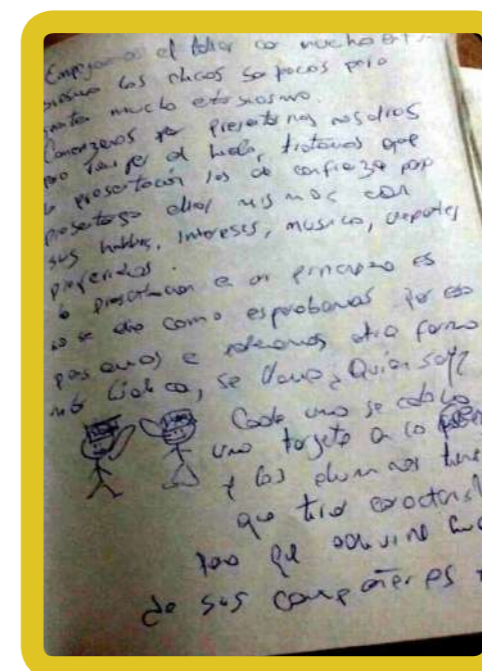 Empezamos el taller con mucho ent-
siasmo los chicos son pocos pero
mucho entusiasmo.
Comenzamos por presentarnos nosotros
para romper el hielo, tratamos que
la presentación les dé confianza para
presentarse ellos mismos con
sus hobbies, intereses, música, deportes
preferidos.
la presentación en un principio
no se dio como esperábamos por eso
pasamos a otra forma
más lúdica, se llama ¿Quién soy?
Cada uno se coloca
una tarjeta en la
y los alumnos
que tirar
para que adivine
de sus compañeros es